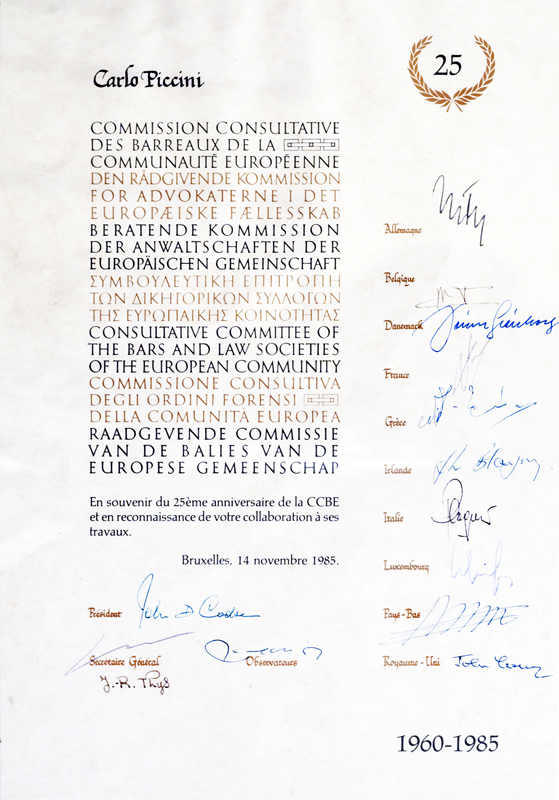 Carlo Piccini
25
COMMISSION CONSULTATIVE
DES BARREAUX DE LA
COMMUNAUTÉ EUROPÉENNE
DEN RÅDGIVENDE KOMMISSION
FOR ADVOKATERNE I DET
EUROPÆISKE FÆLLESSKAB
BERATENDE KOMMISSION
DER ANWALTSCHAFTEN DER
EUROPÄISCHEN GEMEINSCHAFT
ΣΥΜΒΟΥΛΕΥΤΙΚΗ ΕΠΙΤΡΟΠΗ
ΤΩΝ ΔΙΚΗΓΟΡΙΚΩΝ ΣΥΛΛΟΓΩΝ
ΤΗΣ ΕΥΡΩΠΑΙΚΗΣ ΚΟΙΝΟΤΗΤΑΣ
CONSULTATIVE COMMITTEE OF
THE BARS AND LAW SOCIETIES
OF THE EUROPEAN COMMUNITY
COMMISSIONE CONSULTIVA
DEGLI ORDINI FORENSI
DELLA COMUNITÀ EUROPEA
RAADGEVENDE COMMISSIE
VAN DE BALIES VAN DE
EUROPESE GEMEENSCHAP
En souvenir du 25ème anniversaire de la CCBE
et en reconnaissance de votre collaboration à ses
travaux.
Bruxelles, 14 novembre 1985.
Président
Secrétaire Général
Observateurs
J.-R. Thys
Allemagne
Belgique
Danemark
France
Grèce
Irlande
Italie
Luxembourg
Pays-Bas
Royaume-Uni John
1960-1985